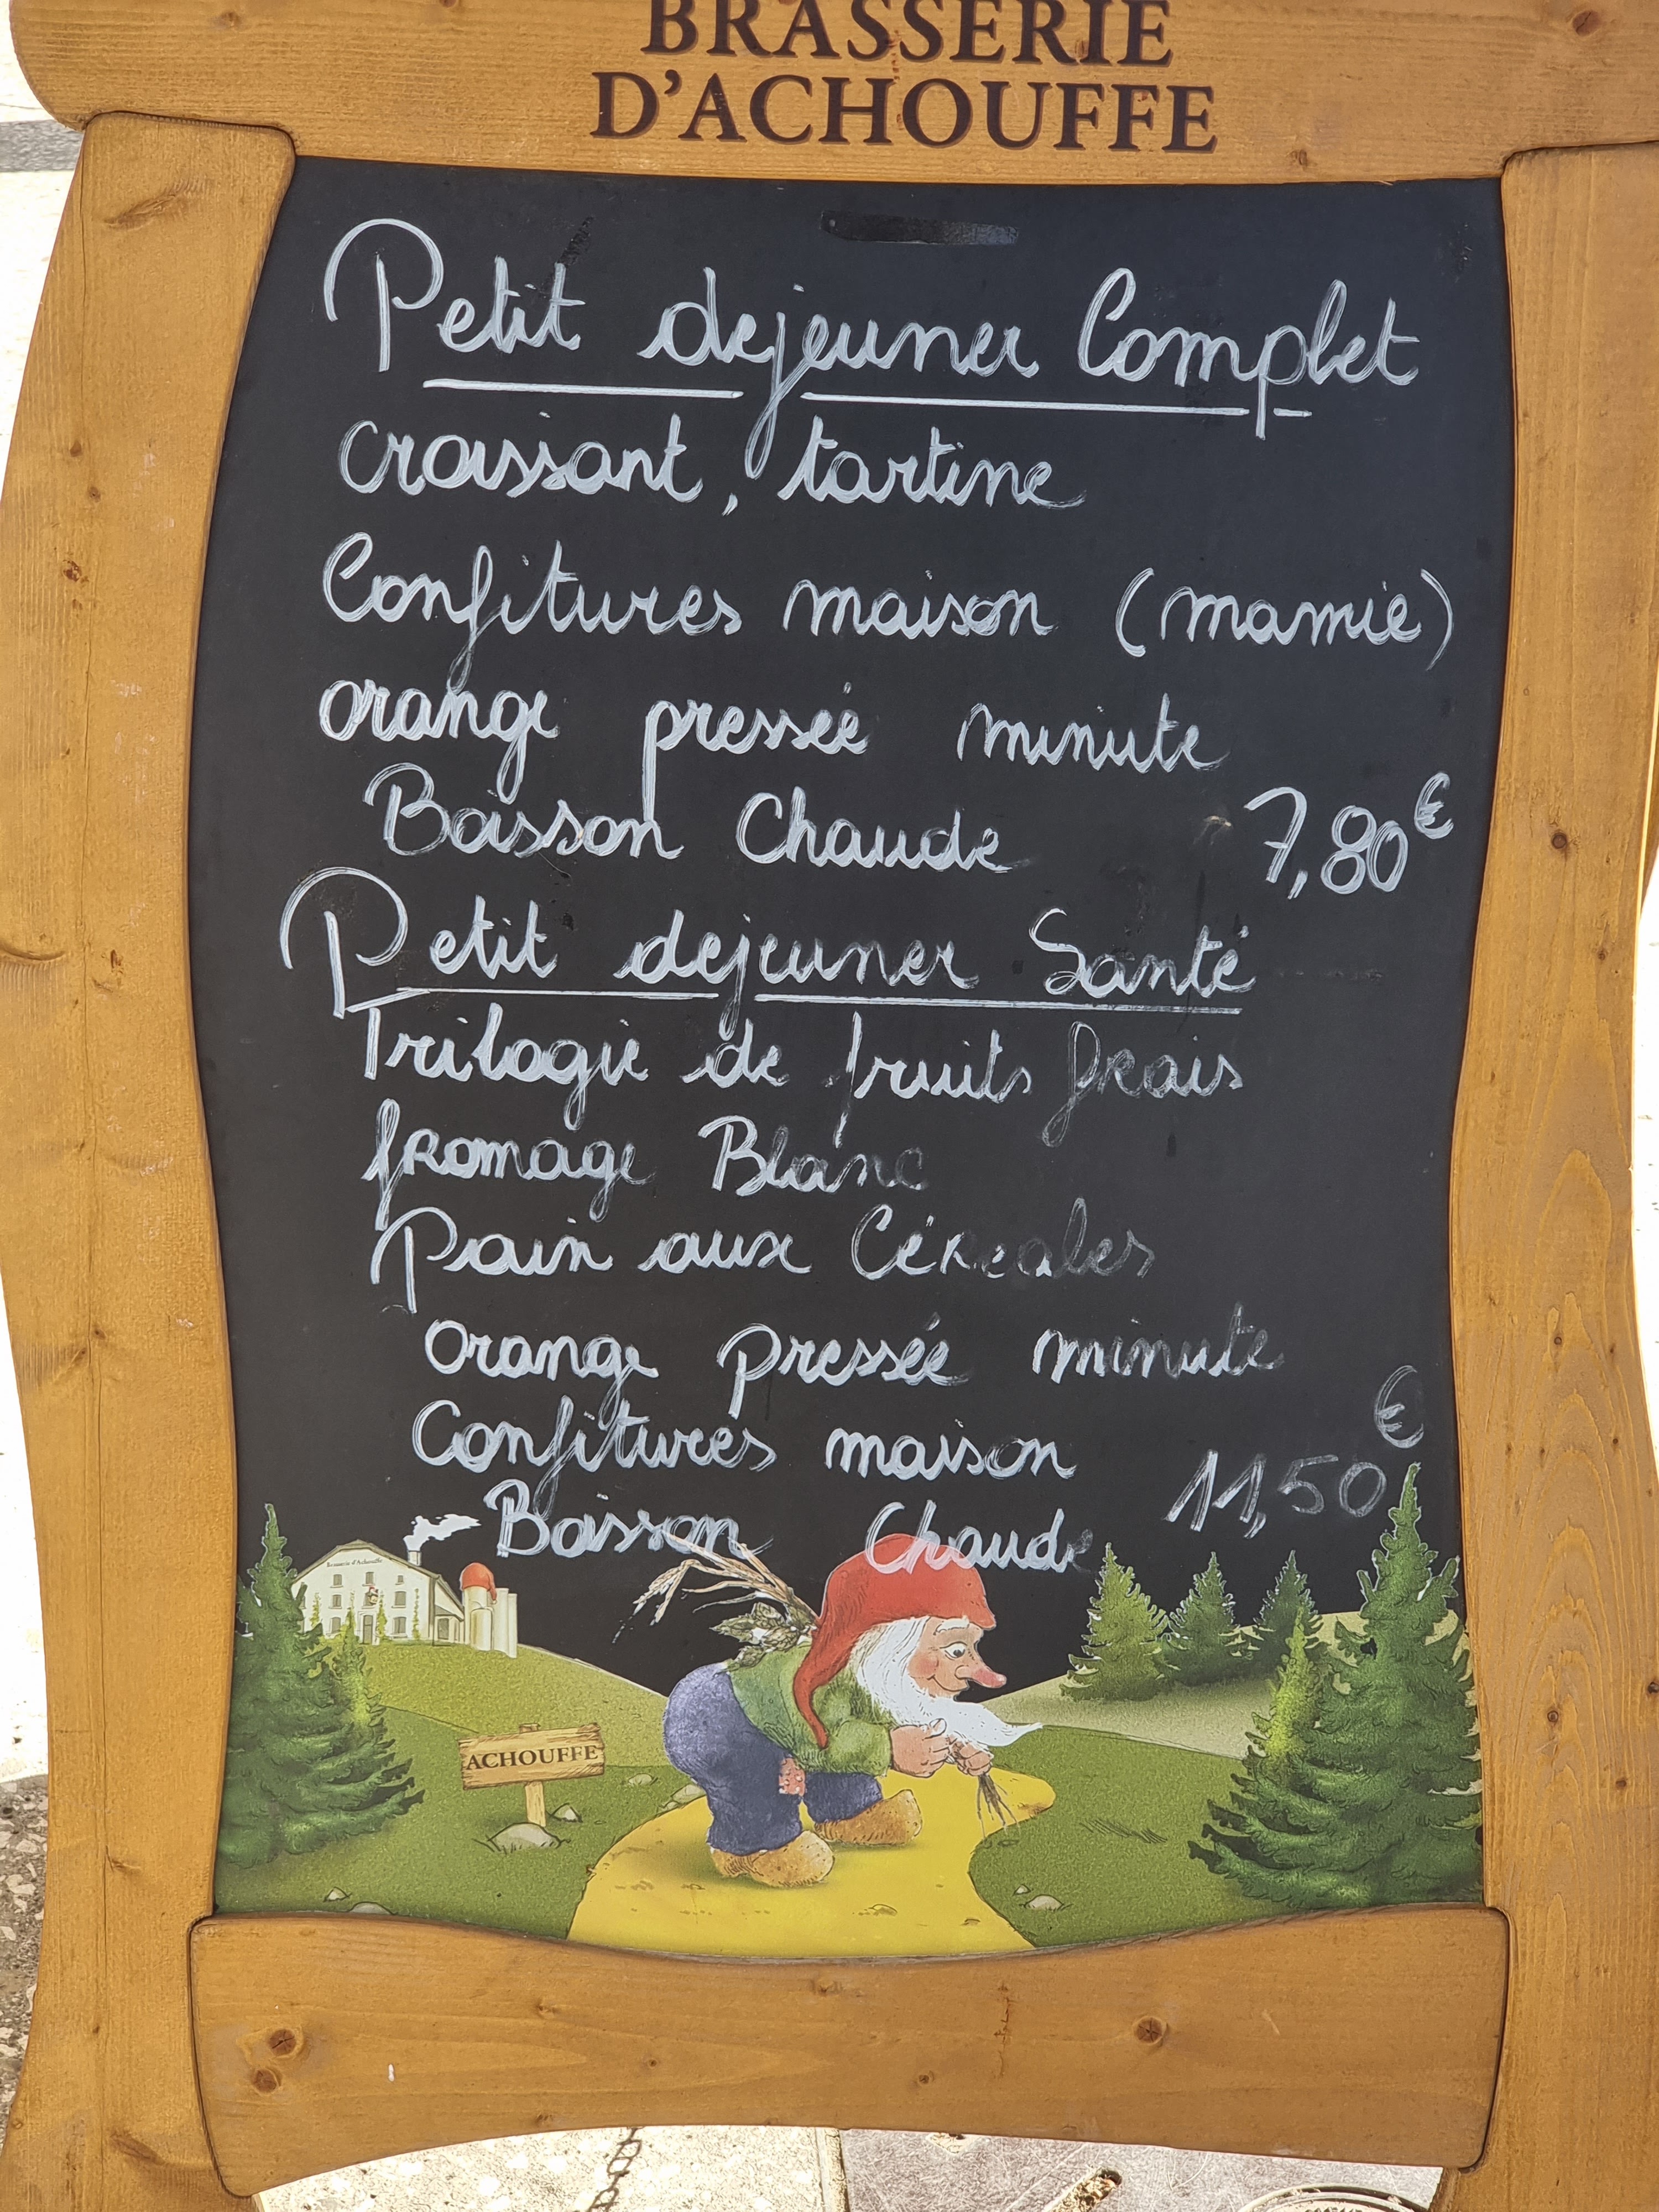 BRASSERIE
D'ACHOUFFE
Petit dejeuner Complet
croissant, tartine
Confitures maison (mamie)
orange pressée minute
Boisson Chaude 7,80€
Petit dejeuner Santé
Trilogie de fruits frais
fromage Blanc
Pain aux Céreales
orange pressée minute
Confitures maison
11,50€
Boisson Chaude
Brasserie d'Achouffe
ACHOUFFE